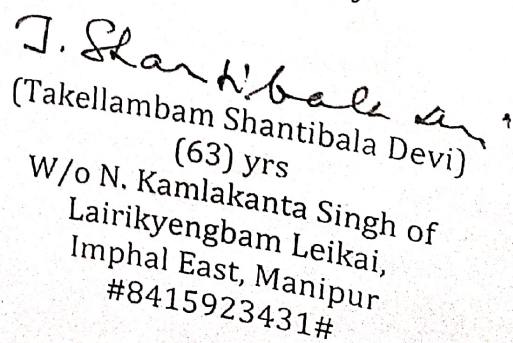 T. Shantibala
(Takellambam Shantibala Devi)
(63) yrs
W/o N. Kamlakanta Singh of
Lairikyengbam Leikai,
Imphal East, Manipur
#8415923431#